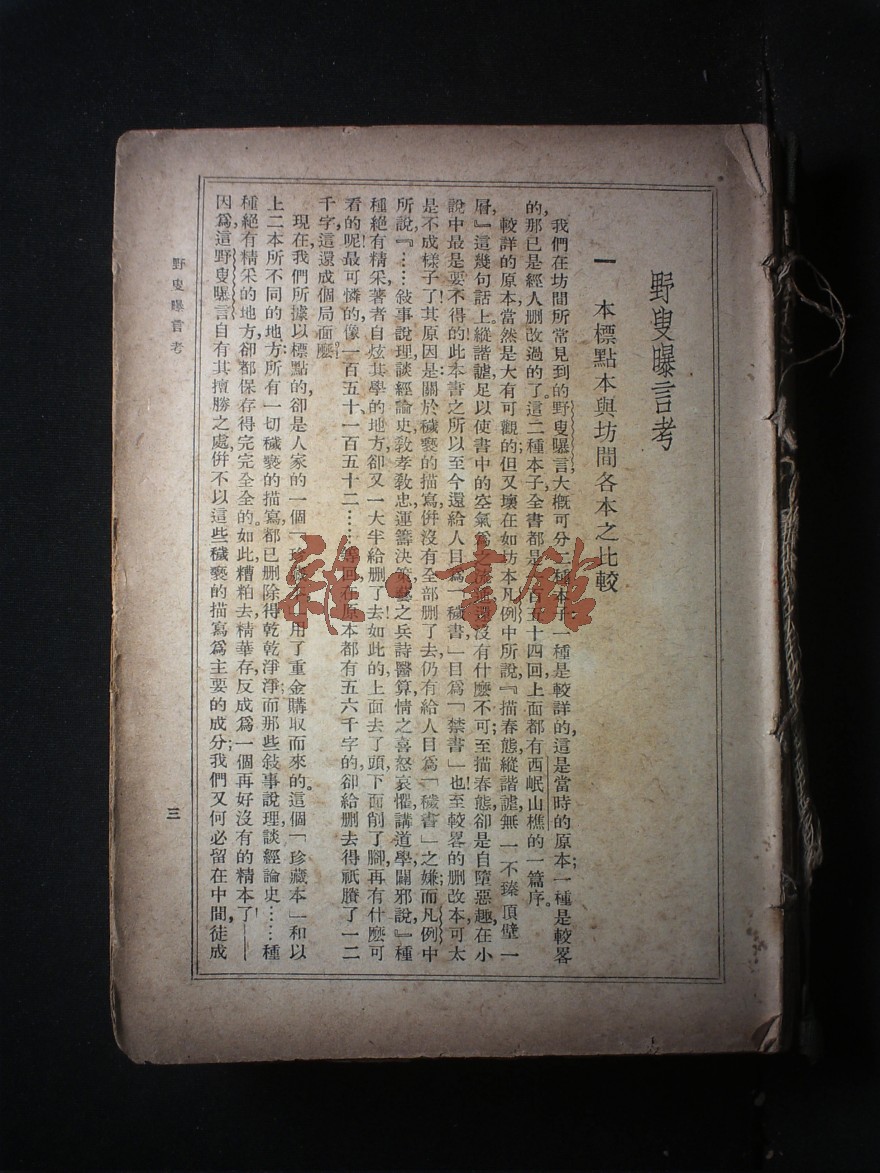 野叟曝言考
一　本標點本與坊間各本之比較
我們在坊間所常見到的野叟曝言，大概可分二種本子：一種是較詳的，這是當時的原本；一種是較畧
的，那已是經人删改過的了。這二種本子，全書都是一百五十四回，上面都有西岷山樵的一篇序。
較詳的原本當然是大有可觀的；但又壞在如坊本凡例中所說，『描春態，縱諧謔，無一不臻頂壁一
層，』這幾句話上。縱諧謔，足以使書中的空氣爲之流通，還沒有什麼不可；至描春態，卻是自墮惡趣，在小
說中最是要不得的！此本書之所以至今還給人目爲「穢書」，目爲「禁書」也！至較畧的删改本，可太
是不成樣子了！其原因是：關於穢褻的描寫，併沒有全部删了去，仍有給人目爲「穢書」之嫌；而凡例中
所說，『……敍事說理，談經論史，敎孝敎忠，運籌決策，藝之兵詩醫算，情之喜怒哀懼，講道學，闢邪說，』種
種絕有精采，著者自炫其學的地方，卻又一大半給删了去！如此的上面去了頭，下面削了腳，再有什麼可
看的呢？最可憐的，像一百五十一，一百五十二……等回，在原本都有五六千字的，卻給删去得祇賸了一二
千字，這還成個局面麼？
現在，我們所據以標點的，卻是人家的一個「珍藏本」，用了重金購取而來的。這個「珍藏本」和以
上二本所不同的地方：所有一切穢褻的描寫，都已删除得乾乾淨淨；而那些敍事說理，談經論史……種
種絕有精采的地方，卻都保存得完完全全的。如此糟粕去，精華存，反成爲一個再好沒有的精本了！——
因爲，這野叟曝言自有其擅勝之處，併不以這些穢褻的描寫爲主要的成分；我們又何必留在中間，徒成
野叟曝言考
三
雜·書館